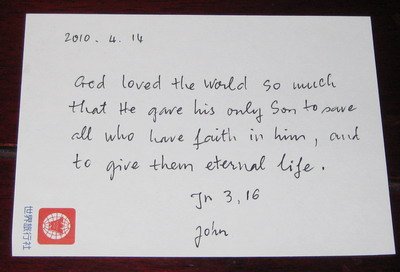 2010. 4. 14
God loved the World so much
that He gave his only Son to save
all who have faith in him, and
to give them eternal life.
Jn 3, 16
John
世界旅行社